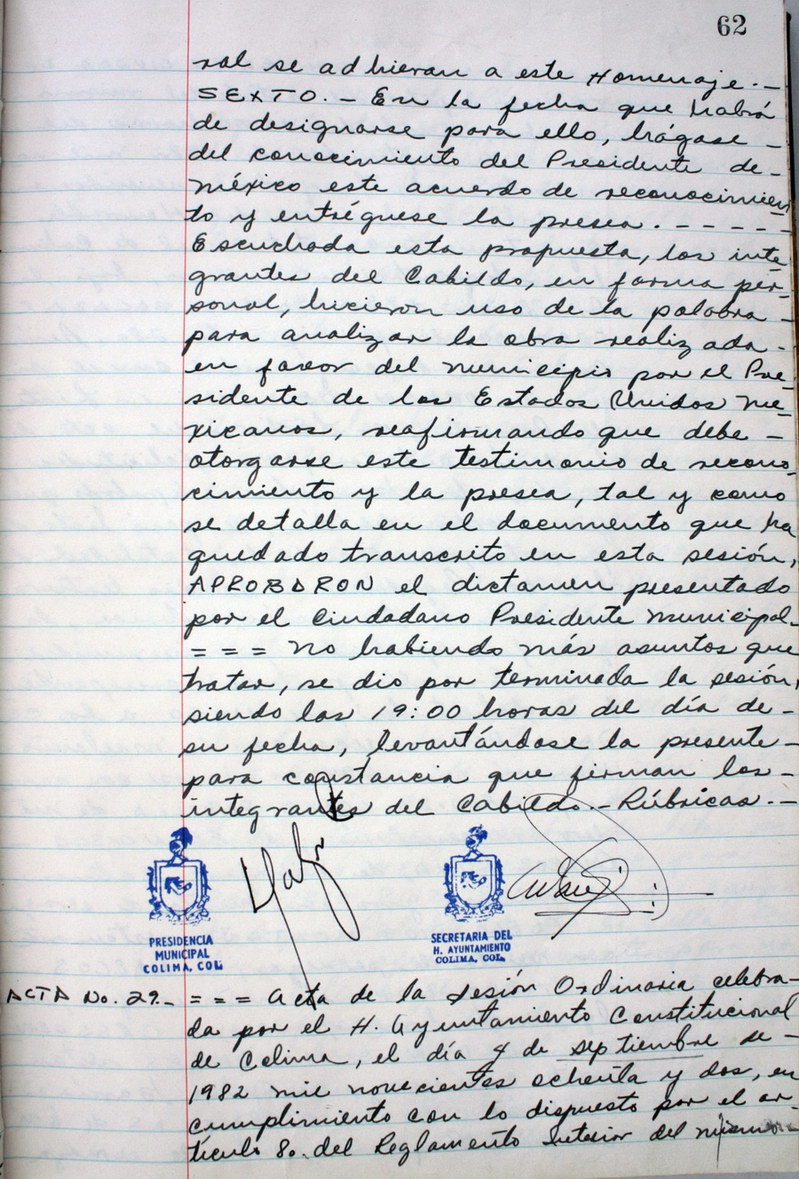 62
ral se adhieran a este Homenaje.-
SEXTO.- En la fecha que habrá
de designarse para ello, hágase -
del conocimiento del Presidente de-
México este acuerdo de reconocimien
to y entréguese la presea. - - - - -
Escuchada esta propuesta, los inte-
grantes del Cabildo, en forma per-
sonal, hicieron uso de la palabra -
para analizar la obra realizada -
en favor del Municipio por el Pre-
sidente de los Estados Unidos Me-
xicanos, reafirmando que debe -
otorgarse este testimonio de recono-
cimiento y la presea, tal y como
se detalla en el documento que ha
quedado transcrito en esta sesión,
APROBARON el dictamen presentado
por el Ciudadano Presidente Municipal.-
= = = No habiendo más asuntos que
tratar, se dio por terminada la sesión,
siendo las 19:00 horas del día de-
su fecha, levantándose la presente-
para constancia que firman los -
integrantes del Cabildo.- Rúbricas.-
PRESIDENCIA
MUNICIPAL
COLIMA, COL.
SECRETARIA DEL
H. AYUNTAMIENTO
COLIMA, COL.
ACTA No. 29.- = = = Acta de la Sesión Ordinaria celebra-
da por el H. Ayuntamiento Constitucional
de Colima, el día 4 de septiembre de -
1982 mil novecientos ochenta y dos, en
cumplimiento con lo dispuesto por el ar-
tículo 8o. del Reglamento Interior del mismo